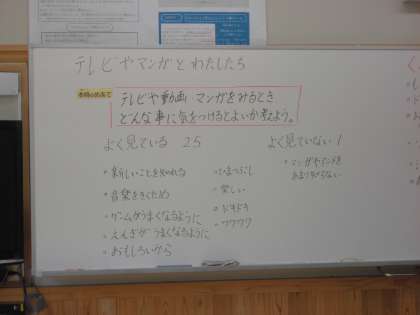 テレビやマンガとわたしたち
本時のめあて
テレビや動画 マンガをみるとき
どんな事に気をつけるとよいか考えよう。
よく見ている 25
・新しいことを知れる
・音楽をきくため
・ゲームがうまくなるように
・えんぎがうまくなるように
・おもしろいから
・ひまつぶし
・楽しい
・ドキドキ
・ワクワク
よく見ていない 1